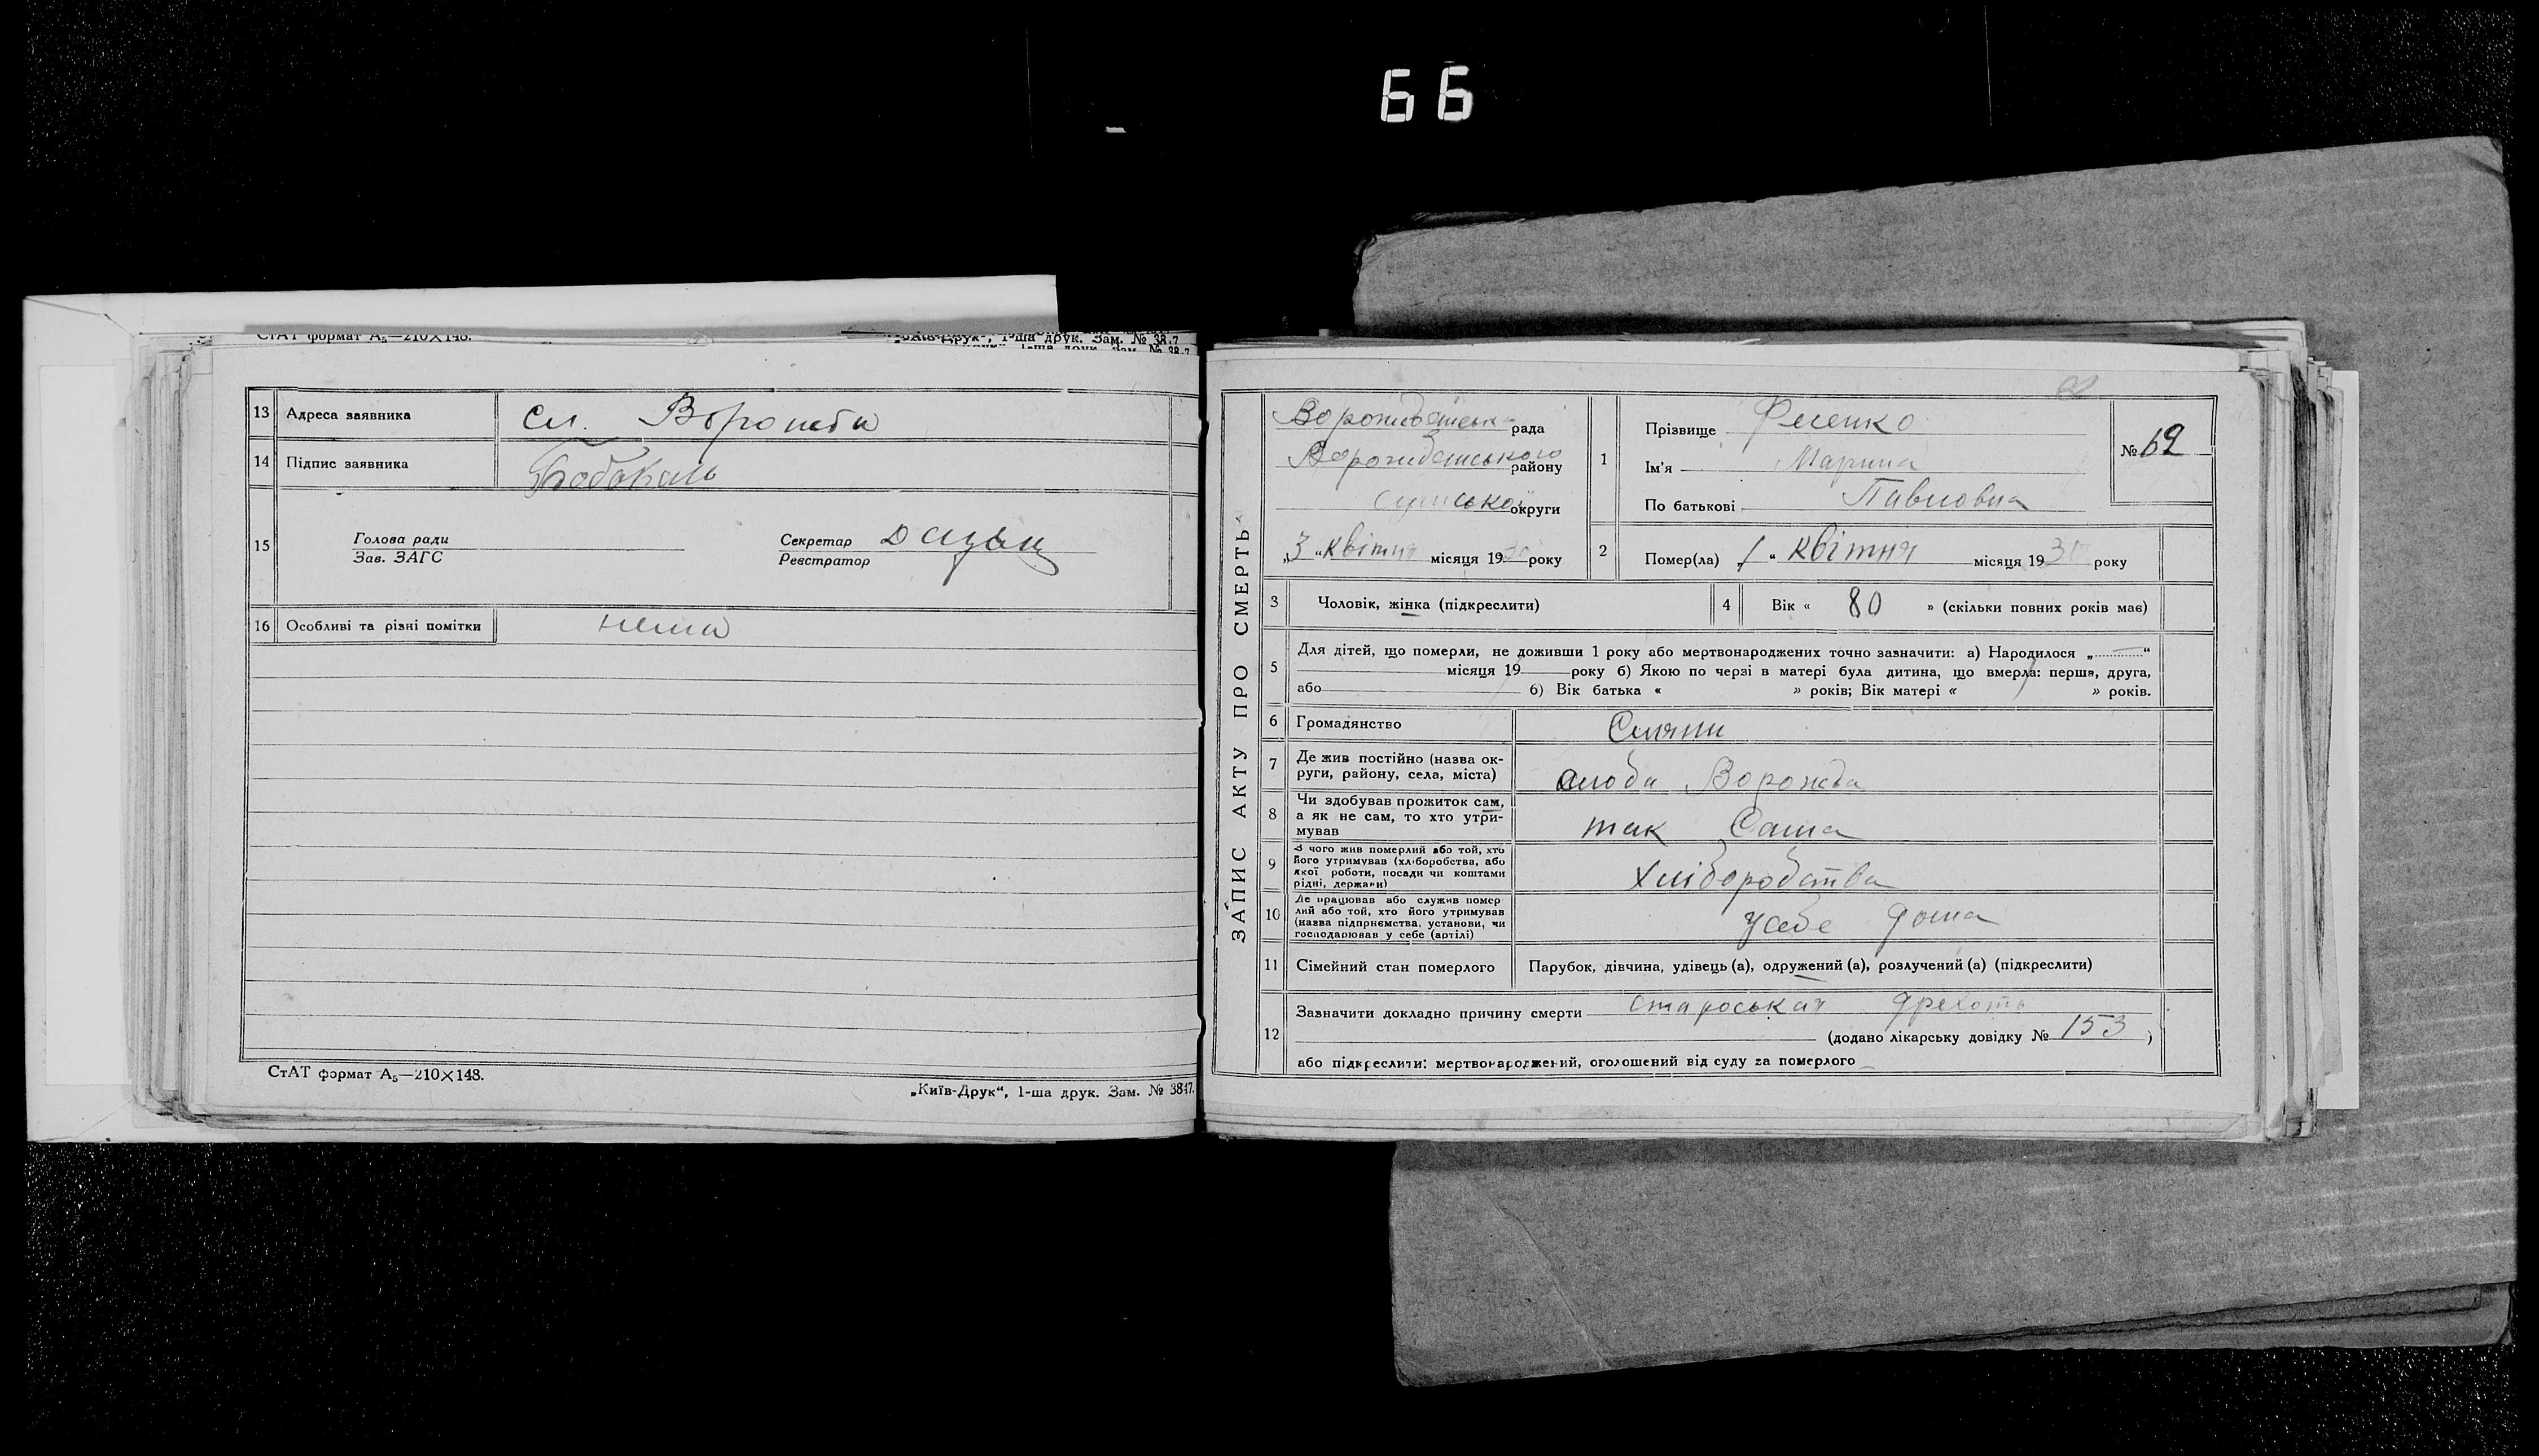 66
СтАТ формат А₅—210×148.
13 Адреса заявника сл. Ворожба
14 Підпис заявника
15 Голова ради
Зав. ЗАГС
Секретар
Реєстратор
16 Особливі та різні помітки нема
СтАТ формат А₅—210×148.
„Київ-Друк“, 1-ша друк. Зам. № 3847.
ЗАПИС АКТУ ПРО СМЕРТЬ
рада
району
Сумської округи
„3“ квітня місяця 1930 року
1 Прізвище Фесенко
Ім'я Марина
По батькові Павловна
№ 62
2 Помер(ла) „1“ квітня місяця 1930 року
3 Чоловік, жінка (підкреслити)
4 Вік « 80 » (скільки повних років мав)
5 Для дітей, що померли, не доживши 1 року або мертвонароджених точно зазначити: а) Народилося „ “
місяця 19 року б) Якою по черзі в матері була дитина, що вмерла: перша, друга,
або б) Вік батька « » років; Вік матері « » років.
6 Громадянство
7 Де жив постійно (назва ок-
руги, району, села, міста) Ворожба
8 Чи здобував прожиток сам,
а як не сам, то хто утри-
мував так Сама
9 З чого жив померлий або той, хто
його утримував (хліборобства, або
якої роботи, посади чи коштами
рідні, держави) Хліборобства
10 Де працював або служив помер
лий або той, хто його утримував
(назва підприємства, установи, чи
господарював у себе (артілі) усебе дома
11 Сімейний стан померлого Парубок, дівчина, удівець (а), одружений (а), розлучений (а) (підкреслити)
12 Зазначити докладно причину смерти
(додано лікарську довідку № 153 )
або підкреслити: мертвонароджений, оголошений від суду за померлого